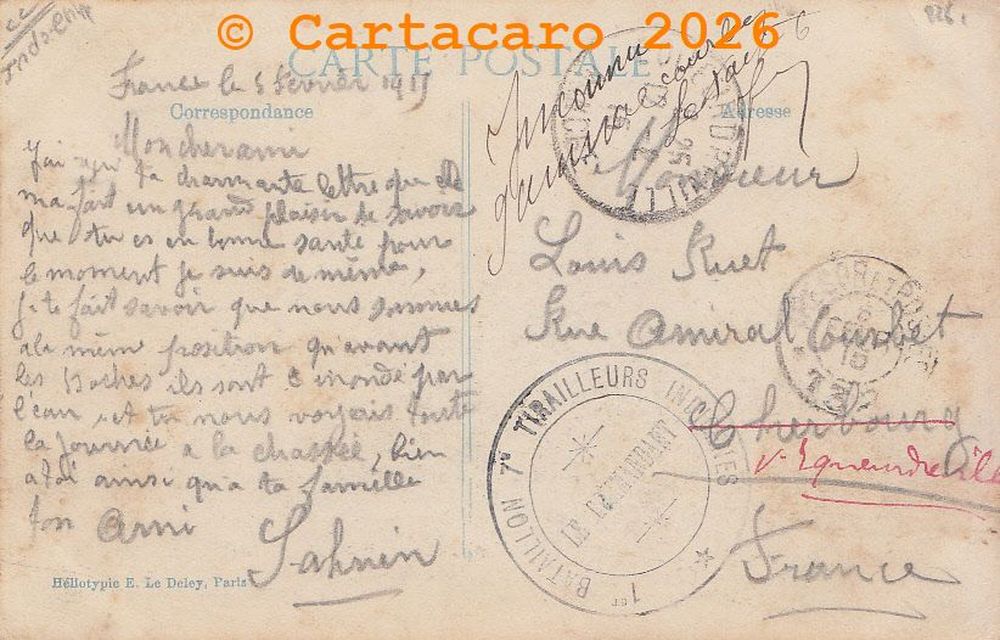 © Cartacaro 2026
CARTE POSTALE
France le 5 Février 1915
Correspondance
Adresse
Mon cher ami
J'ai reçu ta charmante lettre que elle
ma fait un grand plaisir de savoir
que tu es en bonne santé pour
le moment je suis de même,
je te fait savoir que nous sommes
a la même position qu'avant
les Boches ils sont inondé par
l'eau et tu nous voyais toute
la journée a la chasse, bien
a toi ainsi qu'a ta famille
ton Ami
Héliotypie E. Le Deley, Paris
Inconnu
Monsieur
Louis Ruet
Rue Amiral Courbet
Cherbourg
France
1er BATAILLON 7e TIRAILLEURS INDIGENES
LE COMMANDANT
TRESOR ET POSTES